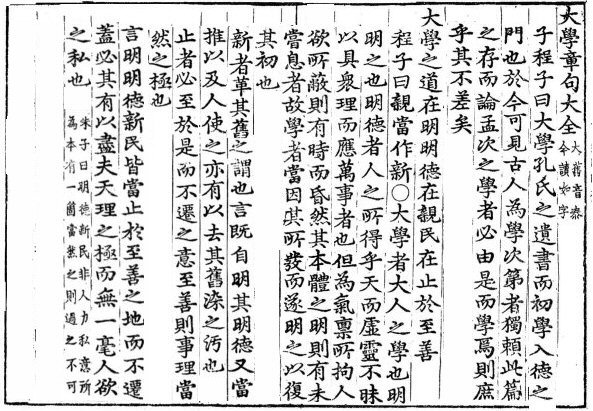 大學章句大全 大舊音泰
今讀如字
子程子曰大學孔氏之遺書而初學入德之
門也於今可見古人為學次第者獨賴此篇
之存而論孟次之學者必由是而學焉則庶
乎其不差矣
大學之道在明明德在親民在止於至善
程子曰親當作新○大學者大人之學也明
明之也明德者人之所得乎天而虛靈不昧
以具衆理而應萬事者也但為氣稟所拘人
欲所蔽則有時而昏然其本體之明則有未
嘗息者故學者當因其所發而遂明之以復
其初也
新者革其舊之謂也言既自明其明德又當
推以及人使之亦有以去其舊染之汚也
止者必至於是而不遷之意至善則事理當
然之極也
言明明德新民皆當止於至善之地而不遷
蓋必其有以盡夫天理之極而無一毫人欲
之私也 朱子曰明德新民非人力私意所
為本有一箇當然之則過之不可